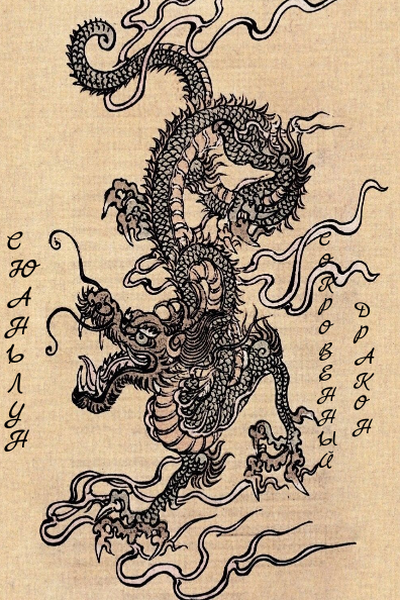 СЮАНЬЛУН
СОКРОВЕННЫЙ
ДРАКОН